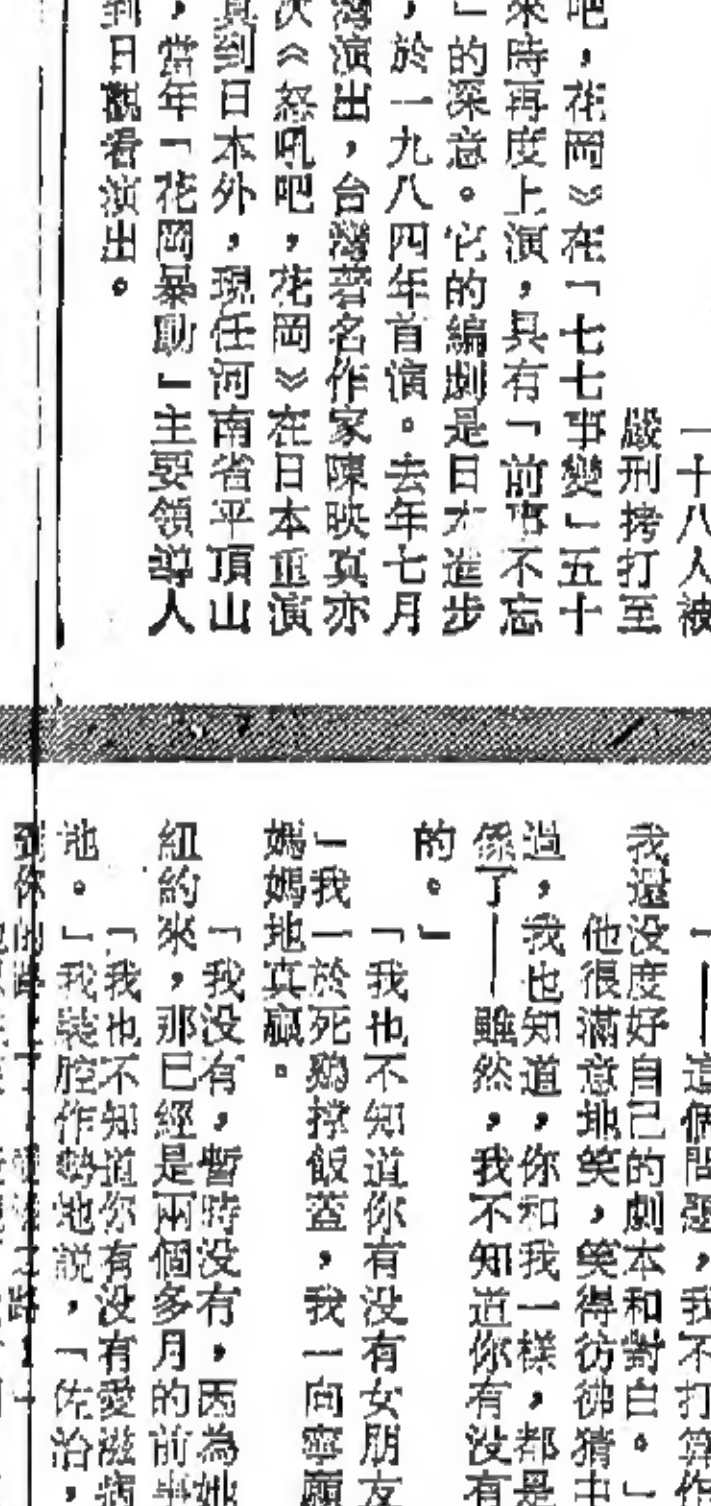 一十八人被
嚴刑拷打至
吧，花岡》在「七七事變」五十
來時再度上演，具有「前事不忘
」的深意。它的編劇是日本進步
，於一九八四年首演。去年七月
灣演出，台灣著名作家陳映真亦
次《怒吼吧，花岡》在日本重演
直到日本外，現任河南省平頂山
，當年「花岡暴動」主要領導人
到日觀看演出。
「——這個問題，我不打算作
我還没度好自己的劇本和對白。」
他很滿意地笑，笑得彷彿猜中
過，我也知道，你和我一樣，都是
係了——雖然，我不知道你有没有
的。」
「我也不知道你有没有女朋友
「我一於死鷄撐飯蓋，我一向寧願
媽媽地真飆。
「我没有，暫時没有，因為她
紐約來，那已經是兩個多月的前事
「我也不知道你有没有愛滋病
地。」我裝腔作勢地説，「佐治，
到你的路